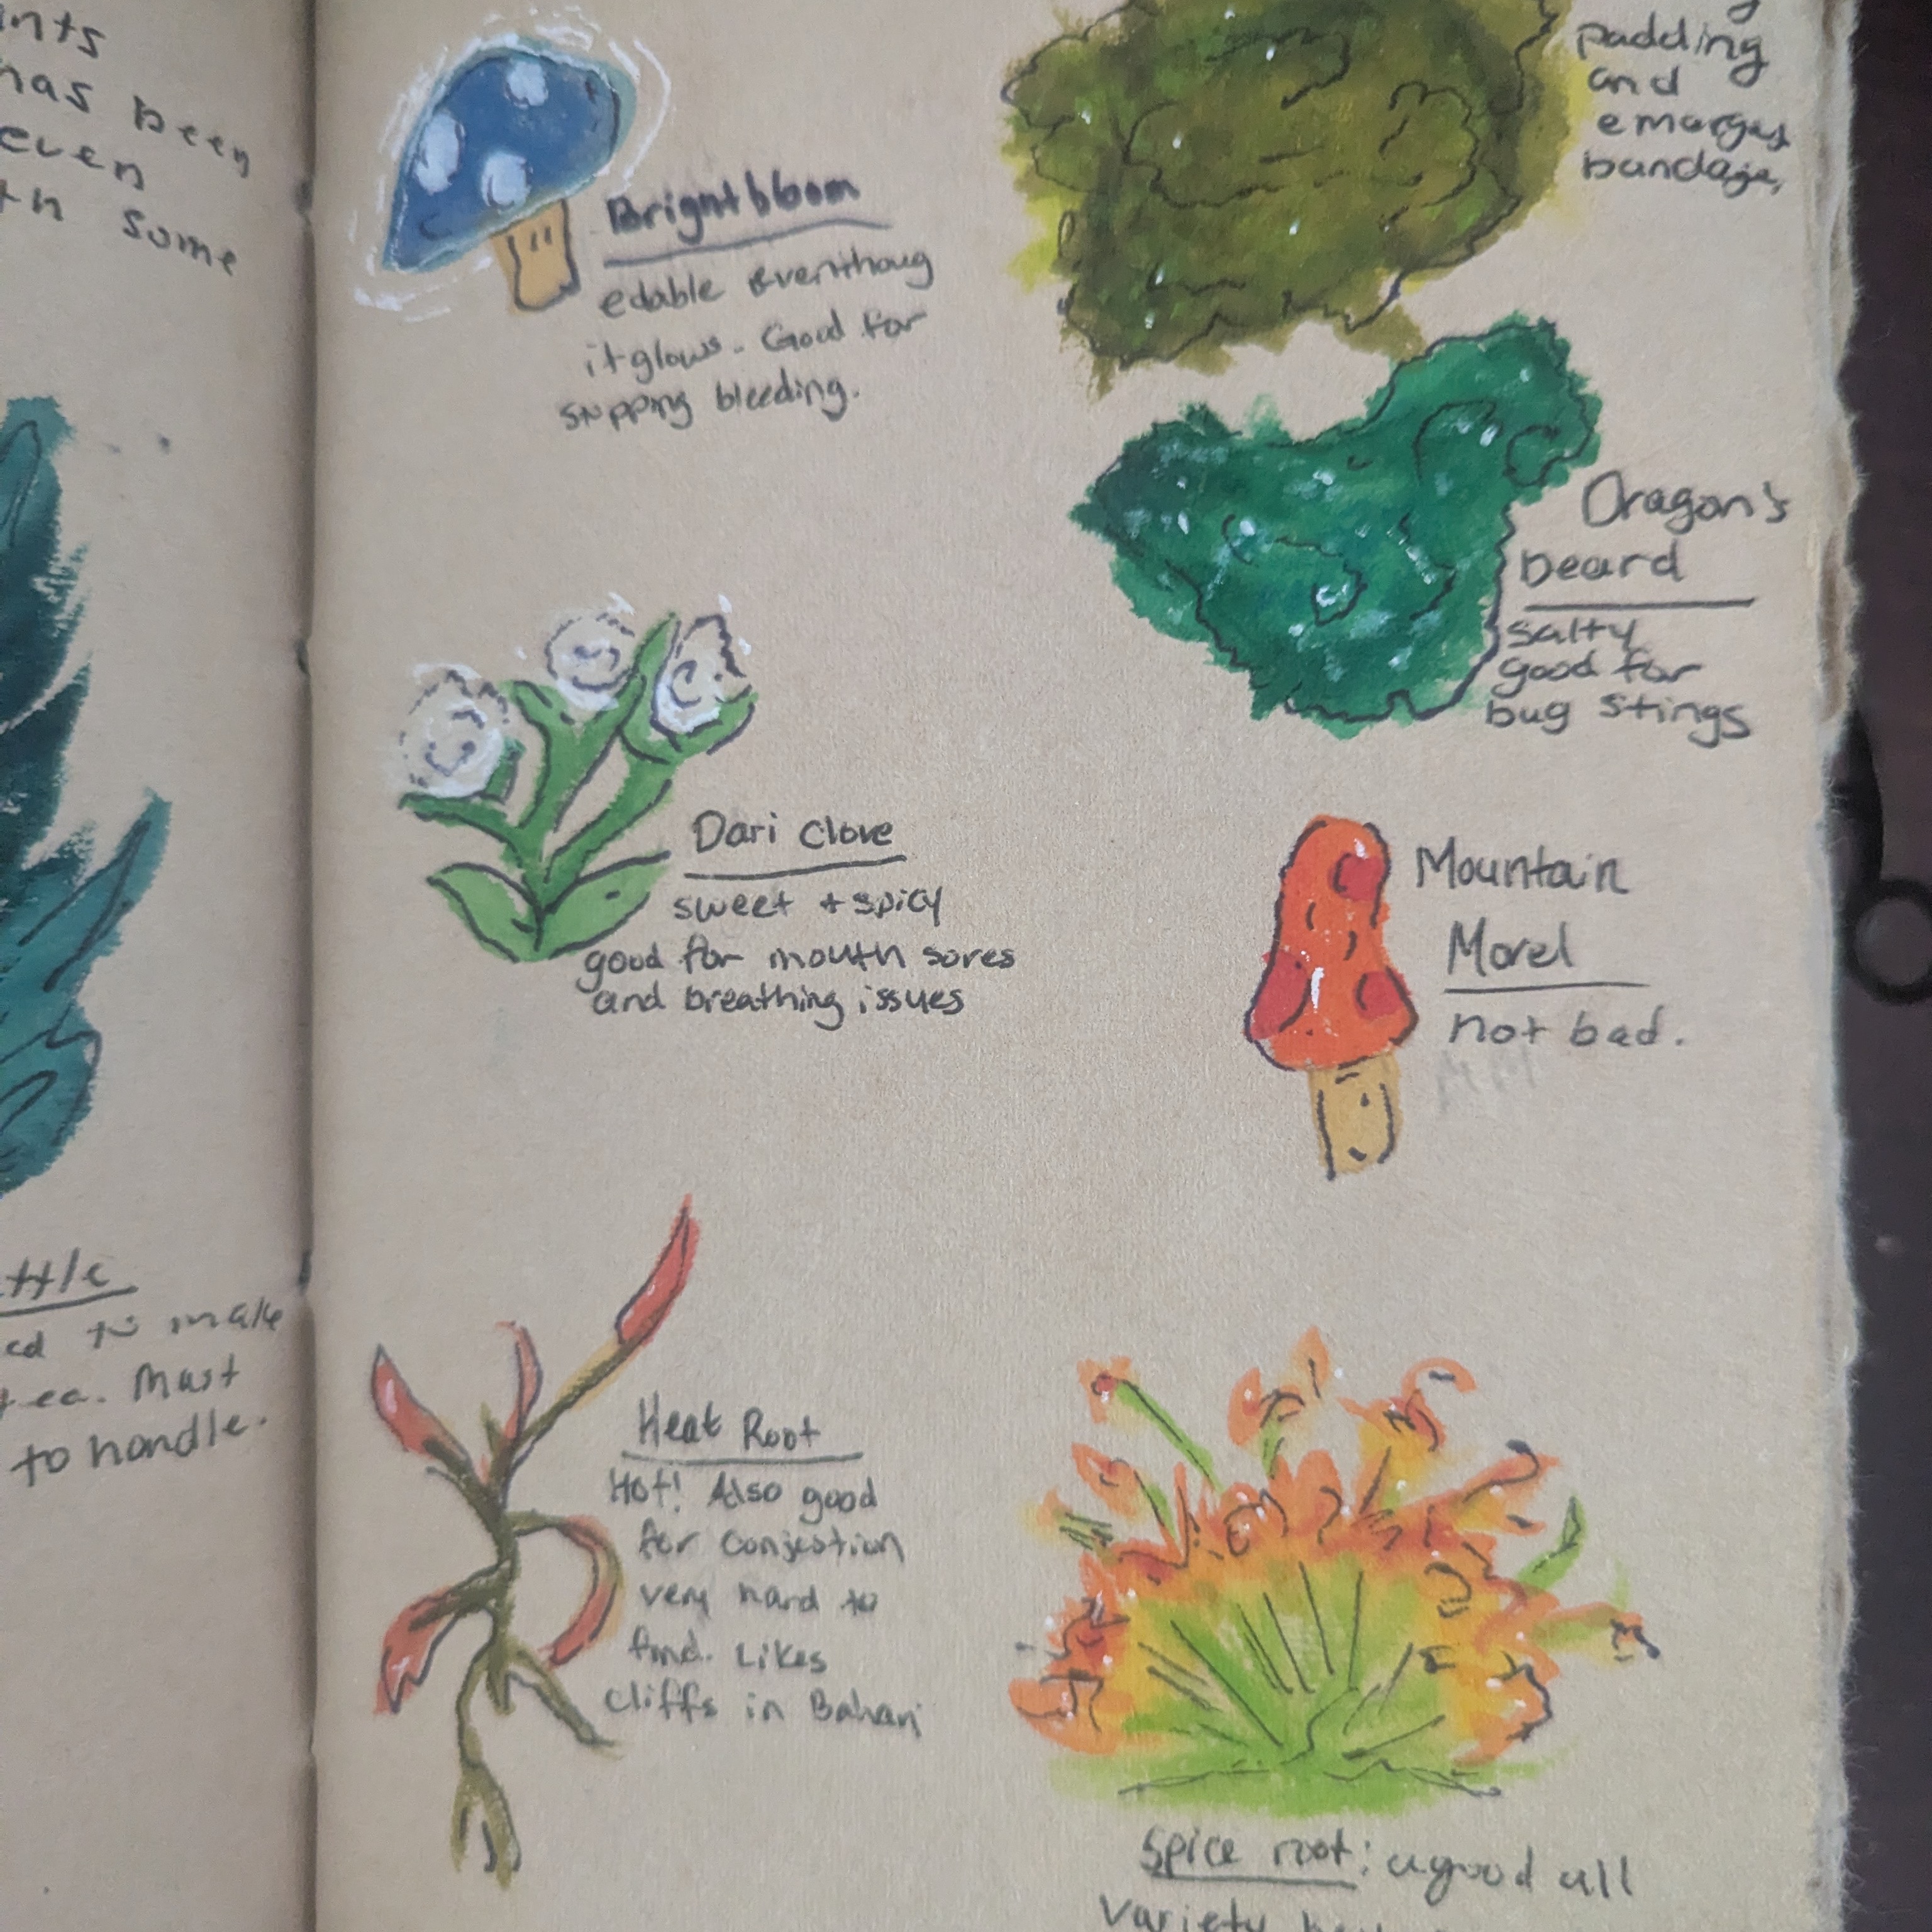 has been
even
some
to make
Must
to handle.
Brightbloom
edable eventhoug
it glows. Good for
stopping bleeding.
Dari Clove
sweet + spicy
good for mouth sores
and breathing issues
Heat Root
Hot! Also good
for conjestion
very hard to
find. Likes
cliffs in Bahari
padding
and
bandage,
Dragon's
beard
salty
good for
bug stings
Mountain
Morel
not bad.
Spice root: a good all
variety